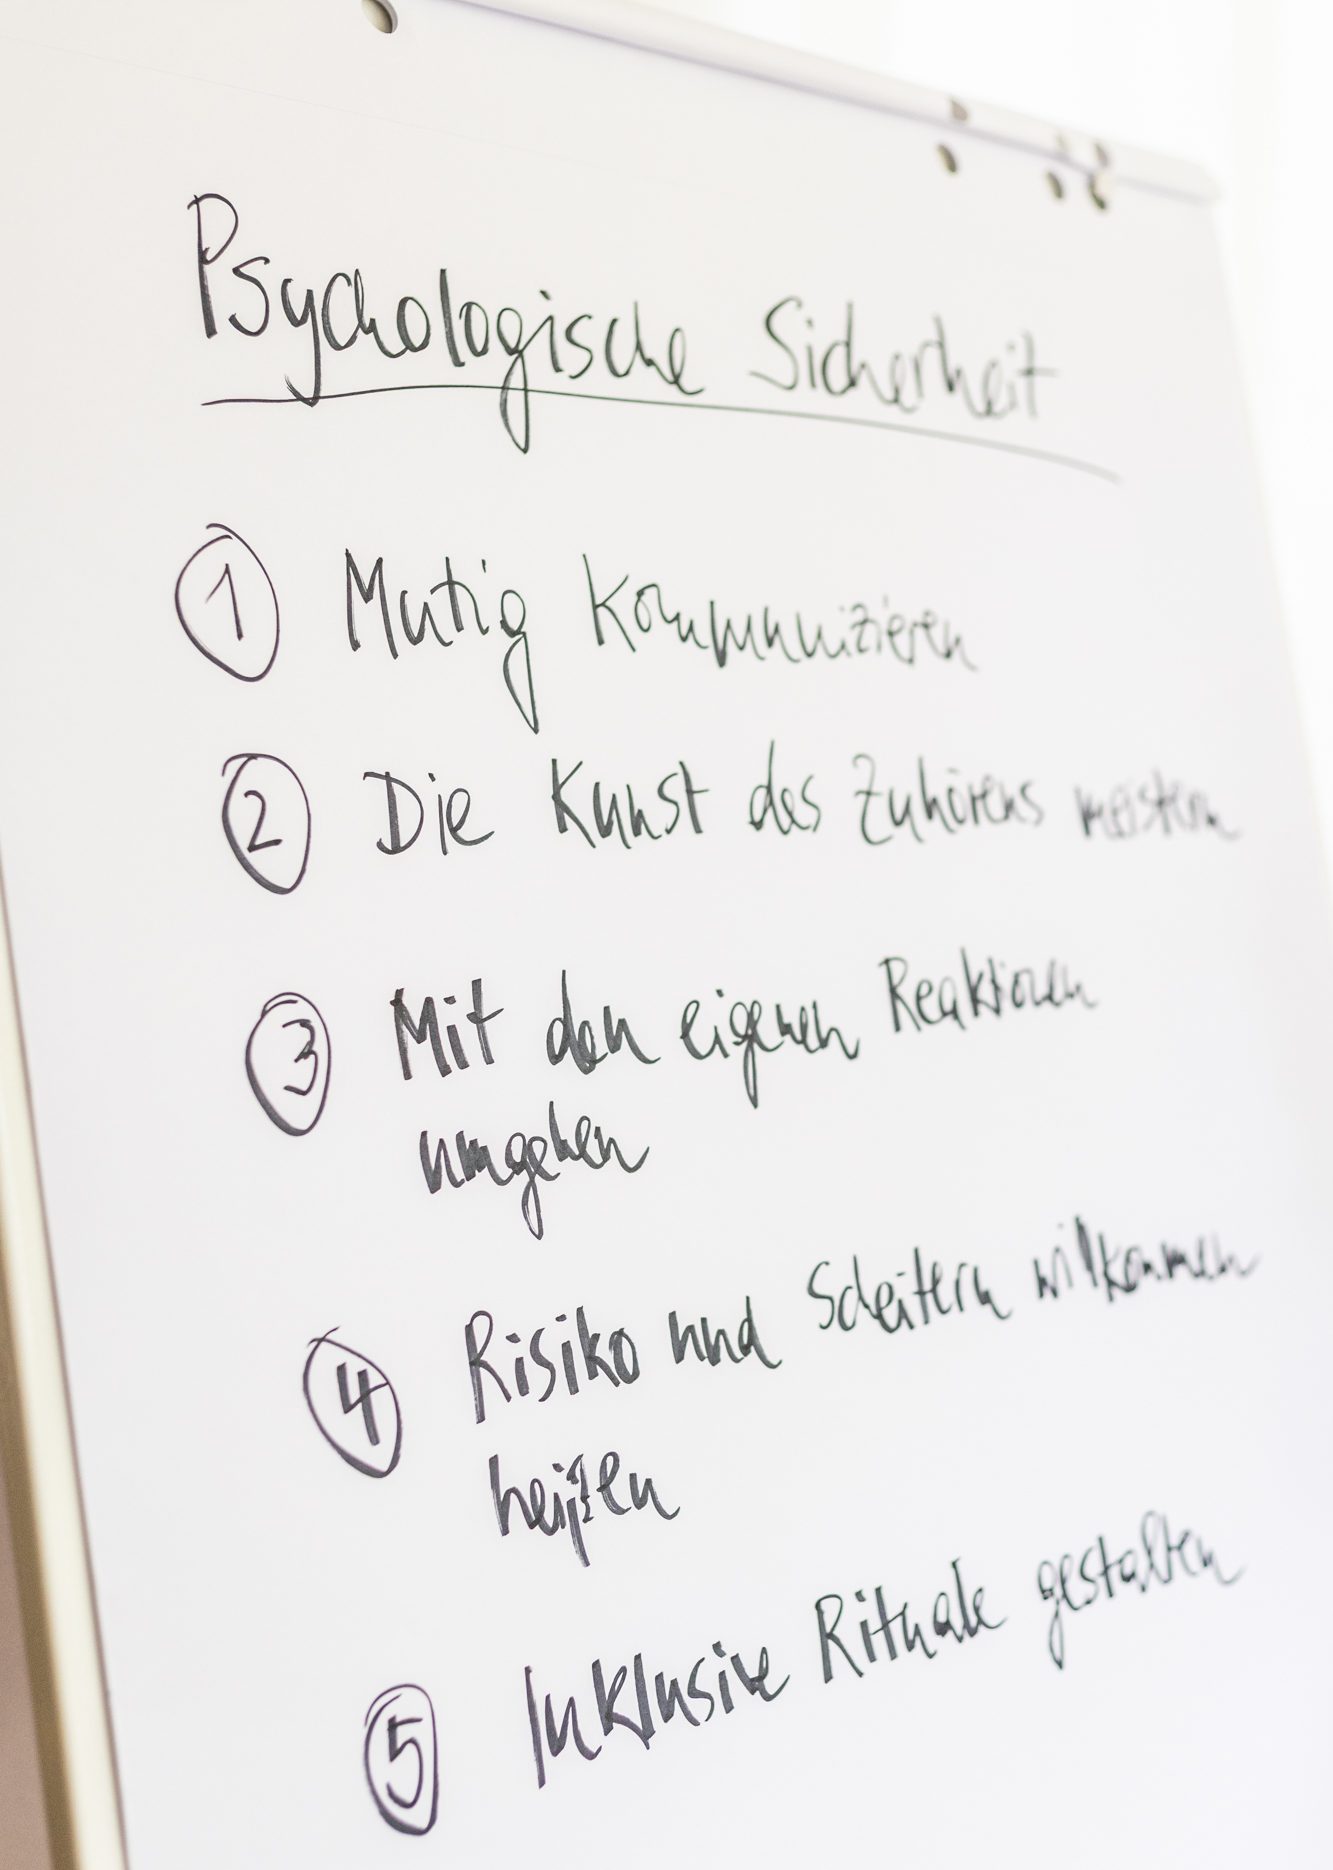 Psychologische Sicherheit
1 Mutig Kommunizieren
2 Die Kunst des Zuhörens meistern
3 Mit den eigenen Reaktionen
umgehen
4 Risiko und Scheitern willkommen
heißen
5 Inklusive Rituale gestalten